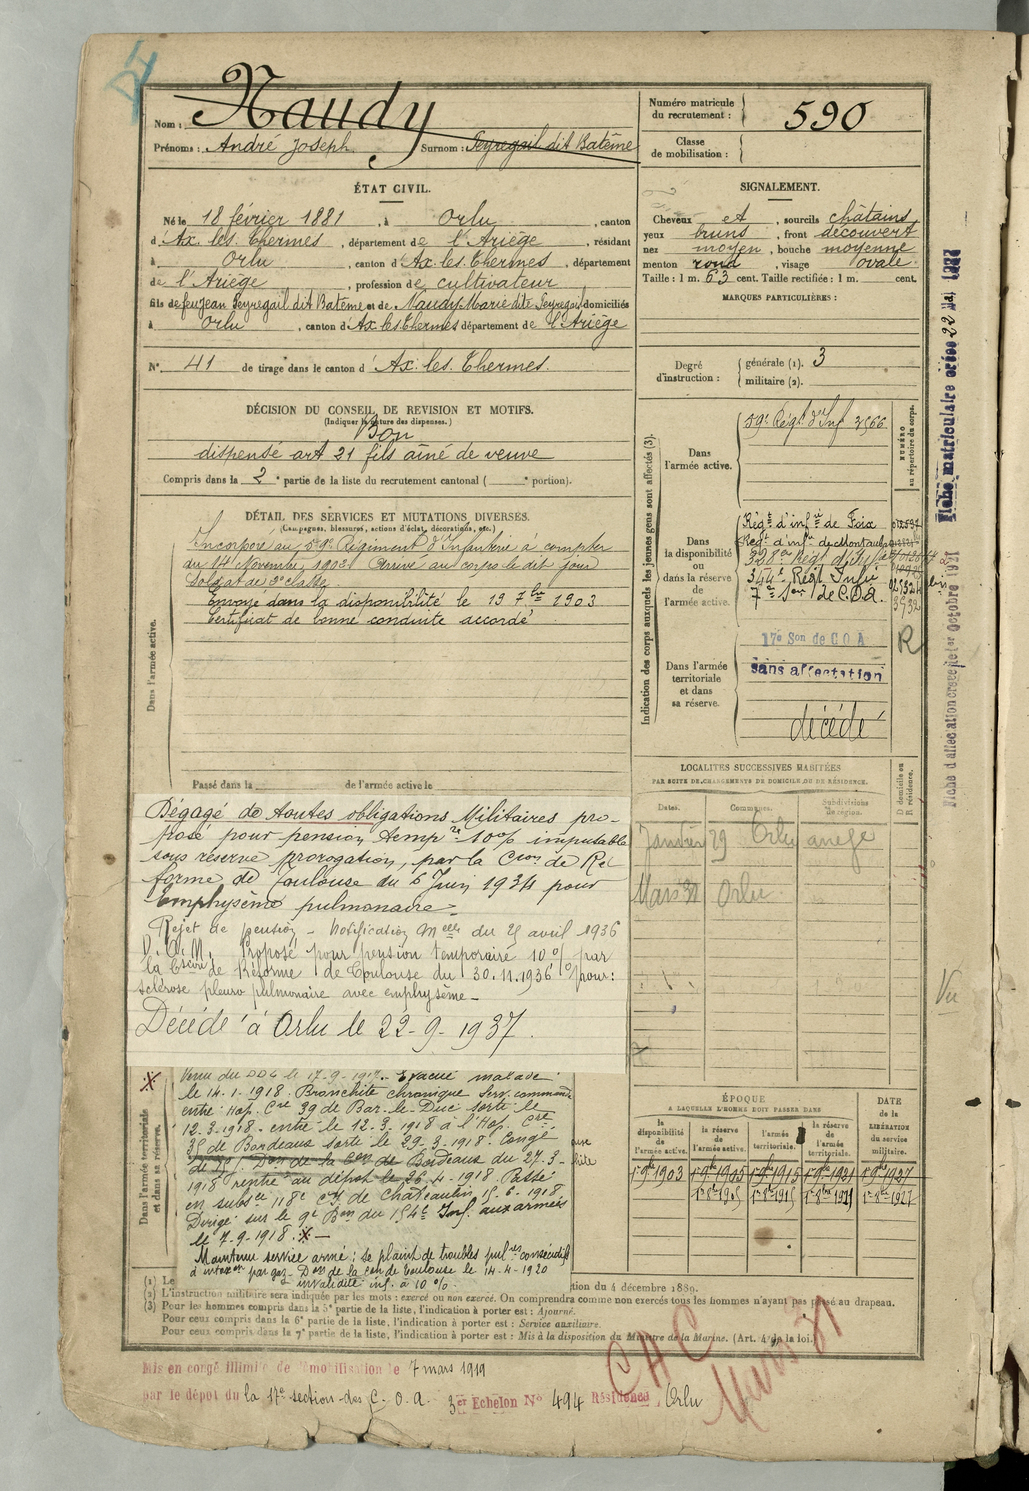 Nom : Naudy
Prénoms : André Joseph Surnom : Peyregail dit Batême
Numéro matricule du recrutement : 590
Classe de mobilisation :
ÉTAT CIVIL.
Né le 18 février 1881, à Orlu, canton
d'Ax les Thermes, département de l'Ariège, résidant
à Orlu, canton d'Ax les Thermes, département
de l'Ariège, profession de cultivateur
fils de feu Jean Peyregail dit Batême et de Naudy Marie dite Peyregail domiciliés
à Orlu, canton d'Ax les Thermes département de l'Ariège
N° 41 de tirage dans le canton d'Ax. les. Thermes.
SIGNALEMENT.
Cheveux et, sourcils châtains
yeux bruns, front découvert
nez moyen, bouche moyenne
menton rond, visage ovale.
Taille : 1 m. 63 cent. Taille rectifiée : 1 m. cent.
MARQUES PARTICULIÈRES :
Degré d'instruction : générale (1). 3
militaire (2).
DÉCISION DU CONSEIL DE REVISION ET MOTIFS.
(Indiquer la nature des dispenses.)
Bon
dispensé art 21 fils aîné de veuve
Compris dans la 2e partie de la liste du recrutement cantonal ( e portion).
DÉTAIL DES SERVICES ET MUTATIONS DIVERSES.
(Campagnes, blessures, actions d'éclat, décorations, etc.)
Dans l'armée active.
Incorporé au 59e Régiment d'Infanterie à compter
du 14 Novembre 1902 Arrivé au corps le dit jour
Soldat de 2e classe
Envoyé dans la disponibilité le 19 7bre 1903
Certificat de bonne conduite accordé
Passé dans la de l'armée active le
Indication des corps auxquels les jeunes gens sont affectés (3).
NUMÉRO au répertoire du corps.
Dans l'armée active.
59e Régt d'Inf 3566
Dans la disponibilité ou dans la réserve de l'armée active.
Régt d'infie de Foix
Régt d'infie de Montauban
328e Régt d'Infie
344e Régt Infie
7e Son de C.O.A.
Dans l'armée territoriale et dans sa réserve.
17e Son de C.O.A
sans affectation
décédé
R
LOCALITÉS SUCCESSIVES HABITÉES
PAR SUITE DE CHANGEMENTS DE DOMICILE OU DE RÉSIDENCE.
Dates. Communes. Subdivisions de région. D domicile ou R résidence.
Janvier 29 Orlu ariege
Mars 31 Orlu
Dégagé de toutes obligations Militaires pro-
posé pour pension tempre 10% imputable
sous réserve prorogation, par la Cion de Ré
forme de Toulouse du 6 Juin 1934 pour
Emphysème pulmonaire =
Rejet de pension - Notification Melle du 25 avril 1936
D.O.M. Proposé pour pension temporaire 10% par
la Cion de Réforme de Toulouse du 30.11.1936 pour:
sclérose pleuro pulmonaire avec emphysème -
Décédé à Orlu le 22-9-1937.
Dans l'armée territoriale et dans sa réserve.
Venu du DD4 le 17-9-1917. Evacué malade
le 14-1-1918. Bronchite chronique Serv. commandé
entré Hop. Cre 39 de Bar-le-Duc sorti le
12-3-1918. entré le 12-3-1918 à l'Hop. Cre
35 de Bordeaux sorti le 29-3-1918. Congé
de 25j. Don de la Con de Bordeaux du 27-3-
1918 rentré au dépôt le 26-4-1918 Passé
en subsce 118e Cie de Chateaulin 15-6-1918
Dirigé sur le 9e Bon du 154e Inf. aux armées
le 7-9-1918. x -
Maintenu service armé ; se plaint de troubles pulres consécutifs
à intoxon par gaz - Don de la Con de Toulouse le 14-4-1920
invalidité inf. à 10%.
ÉPOQUE
A LAQUELLE L'HOMME DOIT PASSER DANS
la disponibilité de l'armée active. la réserve de l'armée active. l'armée territoriale. la réserve de l'armée territoriale.
DATE de la LIBÉRATION du service militaire.
1er 9bre 1903 1er 9bre 1905 1er 9bre 1915 1er 9bre 1921 1er 9bre 1927
1er 8bre 1905 1er 8bre 1915 1er 8bre 1921 1er 8bre 1927
(1) Le
tion du 4 décembre 1889.
(2) L'instruction militaire sera indiquée par les mots : exercé ou non exercé. On comprendra comme non exercés tous les hommes n'ayant pas passé au drapeau.
(3) Pour les hommes compris dans la 5e partie de la liste, l'indication à porter est : Ajourné.
Pour ceux compris dans la 6e partie de la liste, l'indication à porter est : Service auxiliaire.
Pour ceux compris dans la 7e partie de la liste, l'indication à porter est : Mis à la disposition du Ministre de la Marine. (Art. 4 de la loi.)
Mis en congé illimité de démobilisation le 7 mars 1919
par le dépôt du la 17e section des C. O. A. 3er Echelon N° 494 Résidence, Orlu
CHC
Mars 31
Fiche matriculaire créée 22 Mai 1927
Fiche d'affectation créée le 1er Octobre 1921
Vu